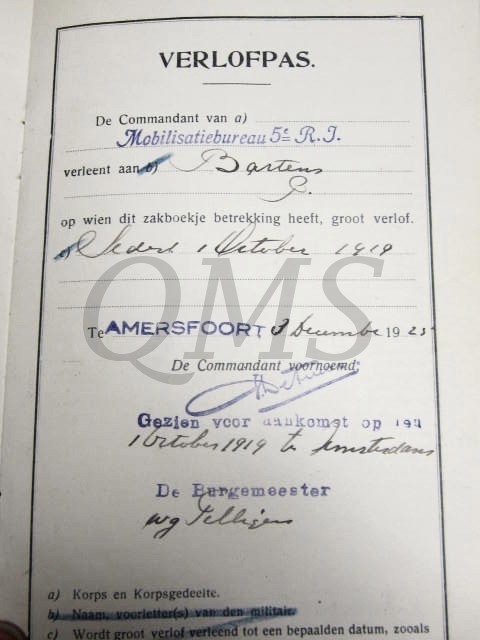 VERLOFPAS.
De Commandant van a)
Mobilisatiebureau 5e R.I.
verleent aan b) Bartens
G.
op wien dit zakboekje betrekking heeft, groot verlof.
c) Sedert 1 October 1919
Te AMERSFOORT 3 December 1925
De Commandant voornoemd:
Gezien voor aankomst op den
1 October 1919 te Amsterdam
De Burgemeester
wg Tellegen
a) Korps en Korpsgedeelte.
b) Naam, voorletter(s) van den militair.
c) Wordt groot verlof verleend tot een bepaalden datum, zooals
QMS